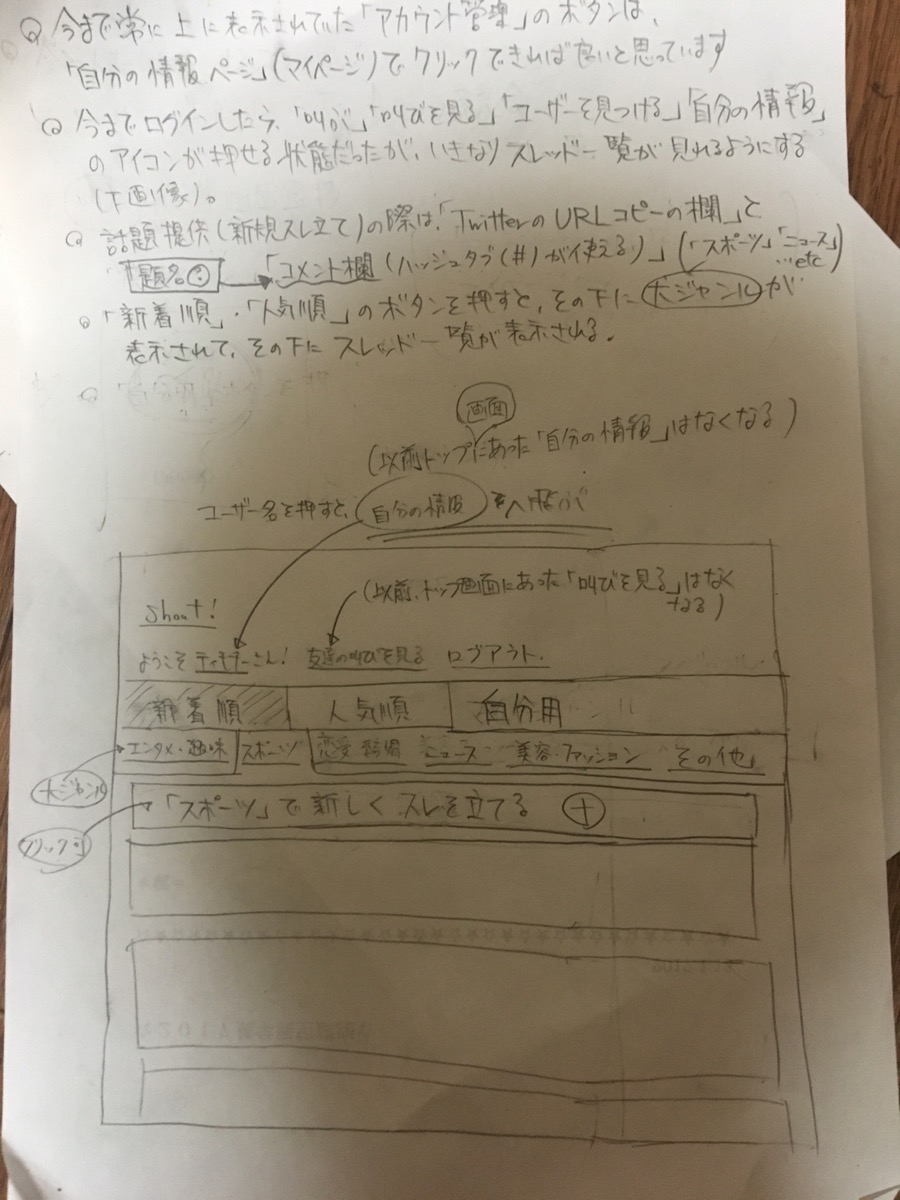 今まで常に上に表示されていた「アカウント管理」のボタンは、
「自分の情報ページ」(マイページ)でクリックできれば良いと思っています
今までログインしたら、「叫ぶ」「叫びを見る」「ユーザーを見つける」「自分の情報」
のアイコンが押せる状態だったが、いきなりスレッド一覧が見れるようにする
(下画像)。
話題提供(新規スレ立て)の際は、「TwitterのURLコピーの欄」と
題名 「コメント欄(ハッシュタブ(#)が使える)」(「スポーツ」「ニュース」
…etc)
「新着順」・「人気順」のボタンを押すと、その下に大ジャンルが
表示されて、その下にスレッド一覧が表示される。
画面
(以前トップにあった「自分の情報」はなくなる)
ユーザー名を押すと、自分の情報 へ飛ぶ
(以前、トップ画面にあった「叫びを見る」はなく
なる)
Shout!
ようこそ さん! 友達の叫びを見る ログアウト
新着順 人気順 自分用
エンタメ・趣味 スポーツ 恋愛・結婚 ニュース 美容・ファッション その他
大ジャンル
「スポーツ」で新しくスレを立てる +
クリック可